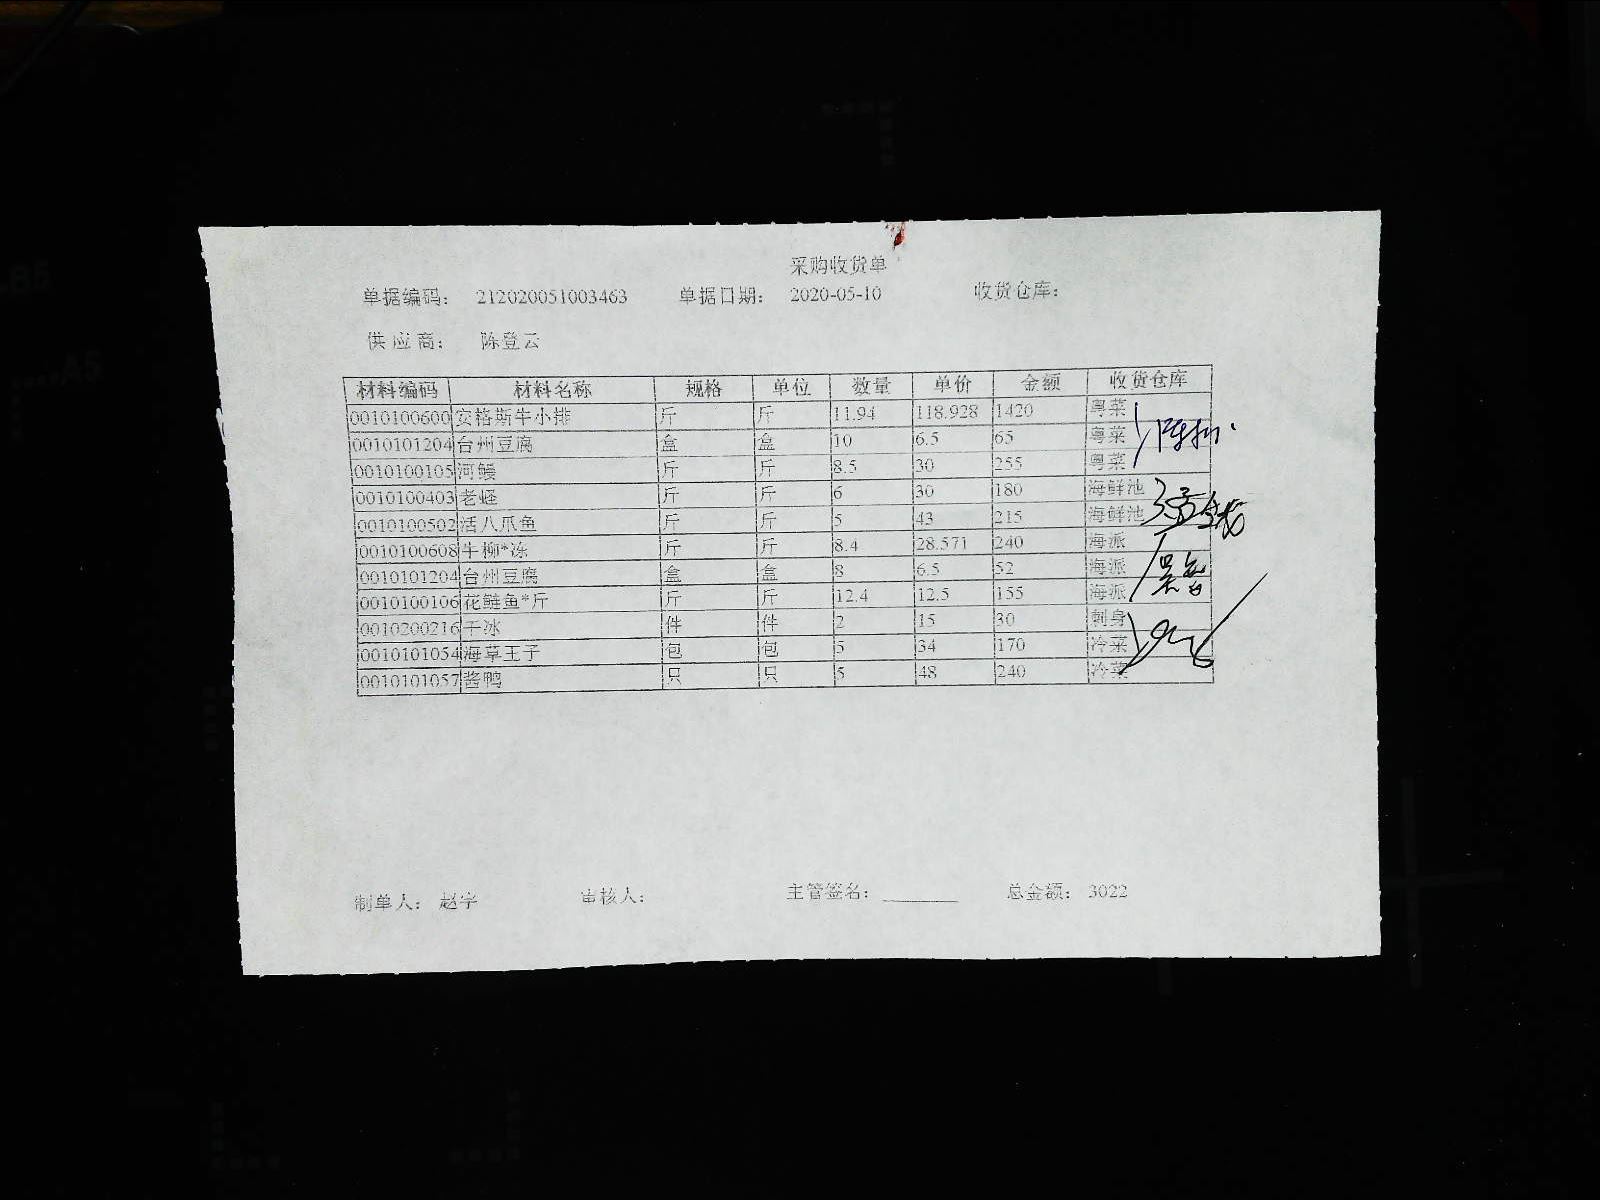 采购收货单
单据编码: 212020051003463 单据日期: 2020-05-10 收货仓库:
供应商: 陈登云
材料编码 材料名称 规格 单位 数量 单价 金额 收货仓库
0010100600 安格斯牛小排 斤 斤 11.94 118.928 1420 粤菜
0010101204 台州豆腐 盒 盒 10 6.5 65 粤菜
0010100105 河鳗 斤 斤 8.5 30 255 粤菜
0010100403 老蛏 斤 斤 6 30 180 海鲜池
0010100502 活八爪鱼 斤 斤 5 43 215 海鲜池
0010100608 牛柳*冻 斤 斤 8.4 28.571 240 海派
0010101204 台州豆腐 盒 盒 8 6.5 52 海派
0010100106 花鲢鱼*斤 斤 斤 12.4 12.5 155 海派
0010200216 干冰 件 件 2 15 30 刺身
0010101054 海草王子 包 包 5 34 170 冷菜
0010101057 酱鸭 只 只 5 48 240 冷菜
制单人: 赵宇 审核人: 主管签名: 总金额: 3022